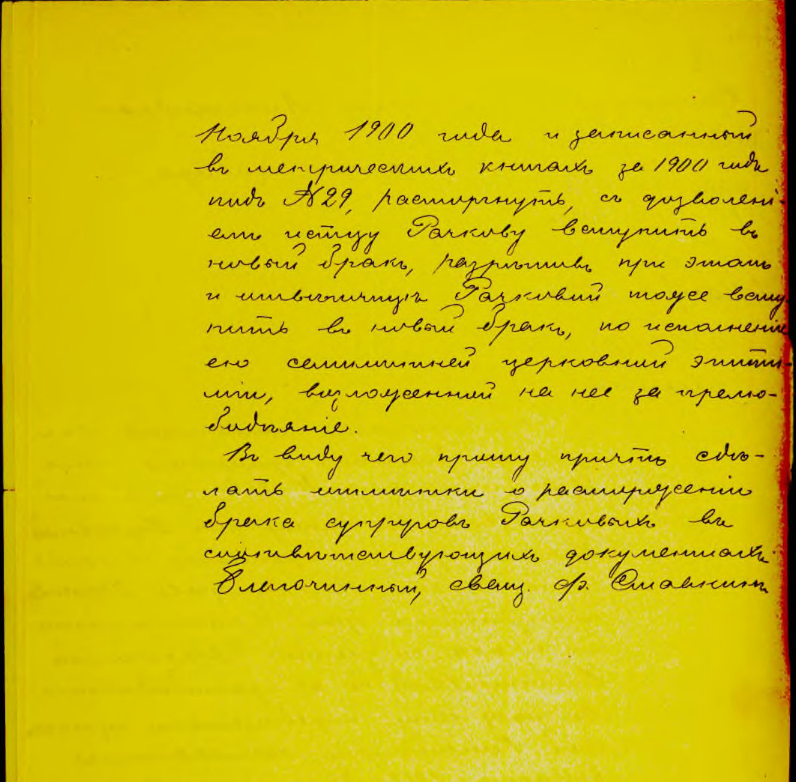 Ноября 1900 года и записанный
въ метрическихъ книгахъ за 1900 годъ
подъ №29, расторгнуть, съ дозволені-
емъ истцу Рачкову вступить въ
новый бракъ, разрѣшивъ при этомъ
и отвѣтчицѣ Рачковой тоже всту
пить въ новый бракъ, по исполненіи
ею семилѣтней церковной эпити-
міи, возложенной на нее за прелю-
бодѣяніе.
Въ виду чего прошу причтъ сдѣ-
лать отмѣтки о расторженіи
брака супруговъ Рачковыхъ въ
соотвѣтствующихъ документахъ
Благочинный, свящ. Ф. Славнинъ